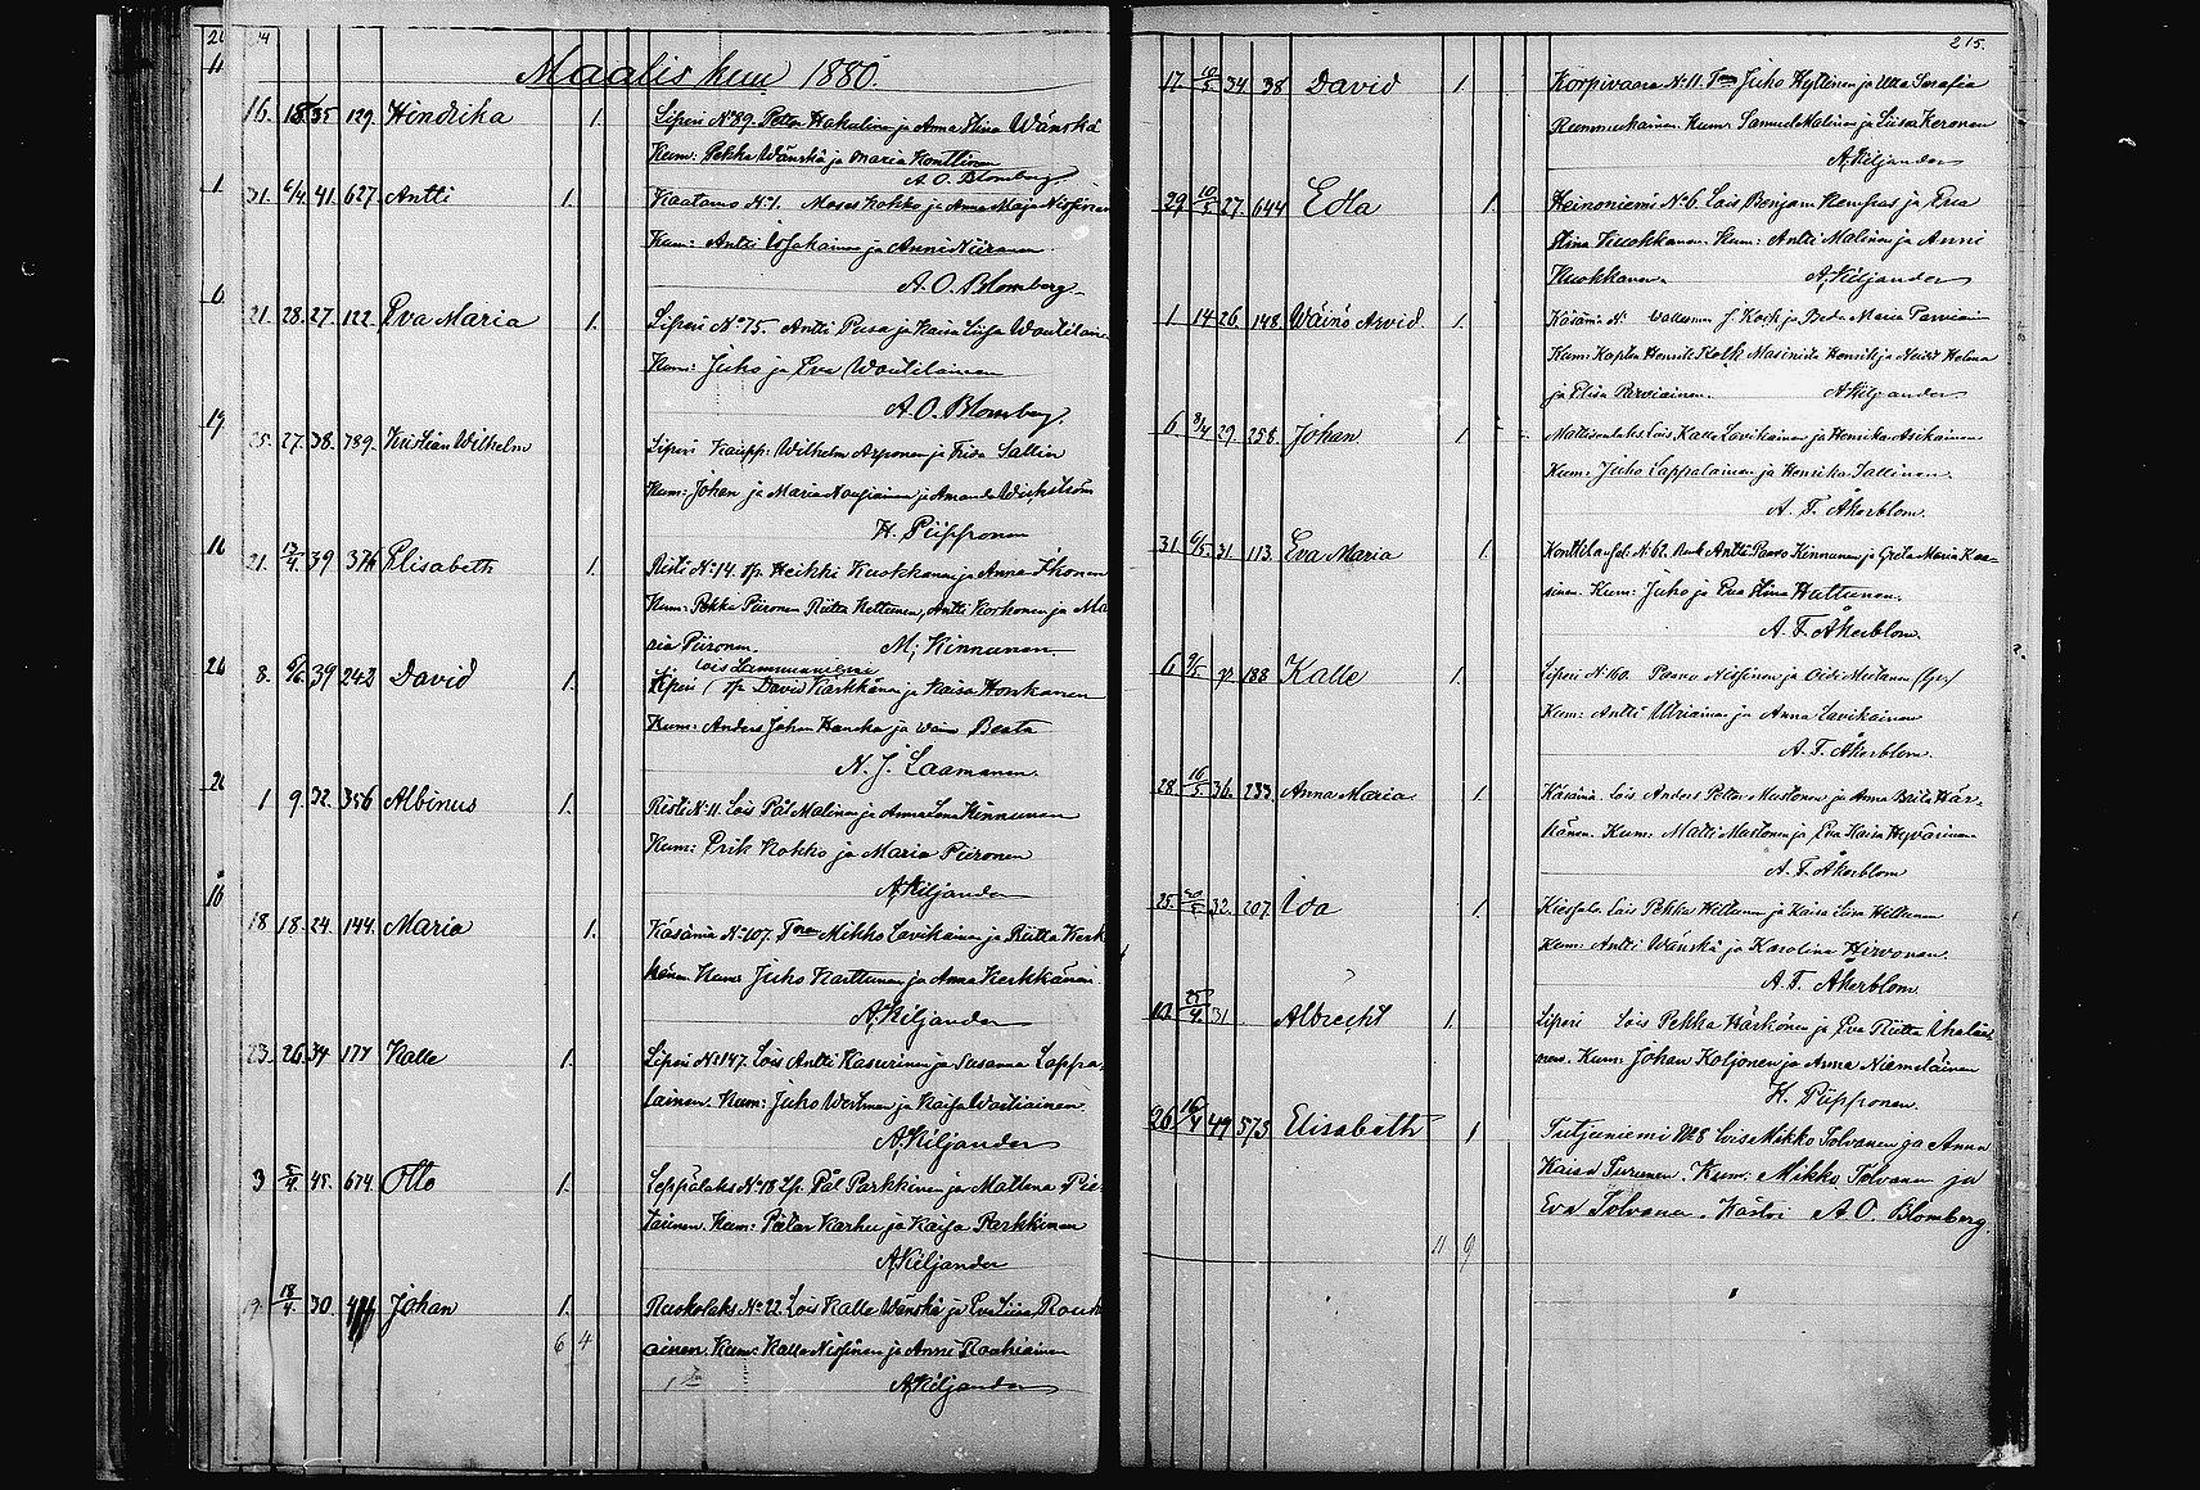 Maaliskuu 1880.
16. 18 35 129. Hindrika 1. Liperi No 89. Petter Hakulinen ja Anna Stina Wänskä
Kum: Pekka Wänskä ja Maria Konttinen
A. O. Blomberg.
31. 6/4. 41. 627. Antti 1. Kaatamo No 1. Moses Kokko ja Anna Maja Nissinen
Kum: Antti ja Anni Niiranen
A. O. Blomberg
21. 28. 27. 122. Eva Maria 1. Liperi No 75. Antti Pusa ja Kaisa Liisa
Kum: Juho ja Eva Woutilainen
A. O. Blomberg.
25. 27. 38. 789. Kristian Wilhelm Liperi Kaupp: Wilhelm Arponen ja Frida Sallin
Kum: Johan ja Maria ja Amanda Wickström
H. Piipponen
21. 13/4. 39 376 Elisabeth 1. Risti No 14. Heikki Kuokkanen ja Anna Ikonen
Kum: Pekka Piironen Riitta Kettunen, Antti Korhonen ja Ma
ria Piironen. M. Kinnunen
lois Lammunniemi
8. 39 242 David 1. Liperi David Kärkkänen ja Kaisa Honkanen
Kum: Anders Johan Hanska ja Beata
N. J. Laamanen.
1 9. 32. 356 Albinus 1. Risti No 11. Lois Pål Malinen ja Anna Lena Kinnunen
Kum: Erik Kokko ja Maria Piironen
A. Kiljander
18 18. 24. 144. Maria 1. Käsämä No 107. Mikko Lavikainen ja Riitta Kerk
känen. Kum: Juho Karttunen ja Anna Kerkkänen.
A. Kiljander
23. 26. 34 177 Kalle 1. Liperi No 147. Lois Antti Kasurinen ja Susanna Lappa-
lainen. Kum: Juho Westman ja Kaisa Wartiainen.
A. Kiljander
3 5/4. 45. 674. Otto 1. Leppälaks No 18 Lp. Pål Parkkinen ja Mattena Pie
tarinen. Kum: Pietar Karhu ja Kaisa Parkkinen
A. Kiljander
19. 18/4. 30. Johan 1. Ruokolaks No 22. Lois Kalle Wänskä ja Eva Liisa
6 4 ainen. Kum: Kalle Nissinen ja Anni
A. Kiljander
215.
17. 10/5. 34 38 David 1. Korpivaara No 11. Juho Kyllönen ja Ulla Serafia
Rummukainen. Kum: Samuel Malinen ja Liisa Keronen
A. Kiljander
29 10/5. 27. 644 Edla 1. Heinoniemi No 6. Lois Benjam ja Eva
Stina Kuokkanen. Kum: Antti Malinen ja Anni
Kuokkanen. A. Kiljander
1 14 26. 148. Wäinö Arvid. 1. Käsämä No J. Koch ja Beda Maria Parviainen
Kum: Kapten Henrik Masinista Henrik ja Helena
ja Elisa Parviainen. A. Kiljander
6. 8/4 29. 258. Johan 1. Lois Kalle Lavikainen ja Henrika Asikainen
Kum: Juho Lappalainen ja Henrika Tallinen.
A. F. Åkerblom.
31. 6/5. 31. 113. Eva Maria 1. No 62. Antti Paavo Kinnunen ja Greta Maria Kaa-
sinen. Kum: Juho ja Eva Stina Huttunen.
A. F. Åkerblom.
6 9/5. 188 Kalle 1. Liperi No 160. Paavo Nissinen ja Mustonen
Kum: Antti ja Anna Lavikainen
A. F. Åkerblom.
28. 16/5. 36. 233. Anna Maria. 1. Käsämä. Lois Anders Petter Mustonen ja Anna Brita Kär-
känen. Kum: Matti Mustonen ja Eva Kaisa Hyvärinen.
A. F. Åkerblom
25. 32. 207. Ida 1. Lois Pekka Hiltunen ja Kaisa Liisa Hiltunen
Kum: Antti Wänskä ja Karolina Hirvonen.
A. F. Åkerblom.
10. 25/4. 31. Albrecht 1. Liperi Lois Pekka Härkönen ja Eva Riitta Ihaläi
nen. Kum: Johan Koljonen ja Anna Niemeläinen
H. Piipponen.
26 16/4 49 575 Elisabeth 1 Tutjuniemi No 8 lois Mikko Tolvanen ja Anna
Kaisa Turunen. Kum: Mikko Tolvanen ja
Eva Tolvanen. Kastoi A. O. Blomberg.
11 9